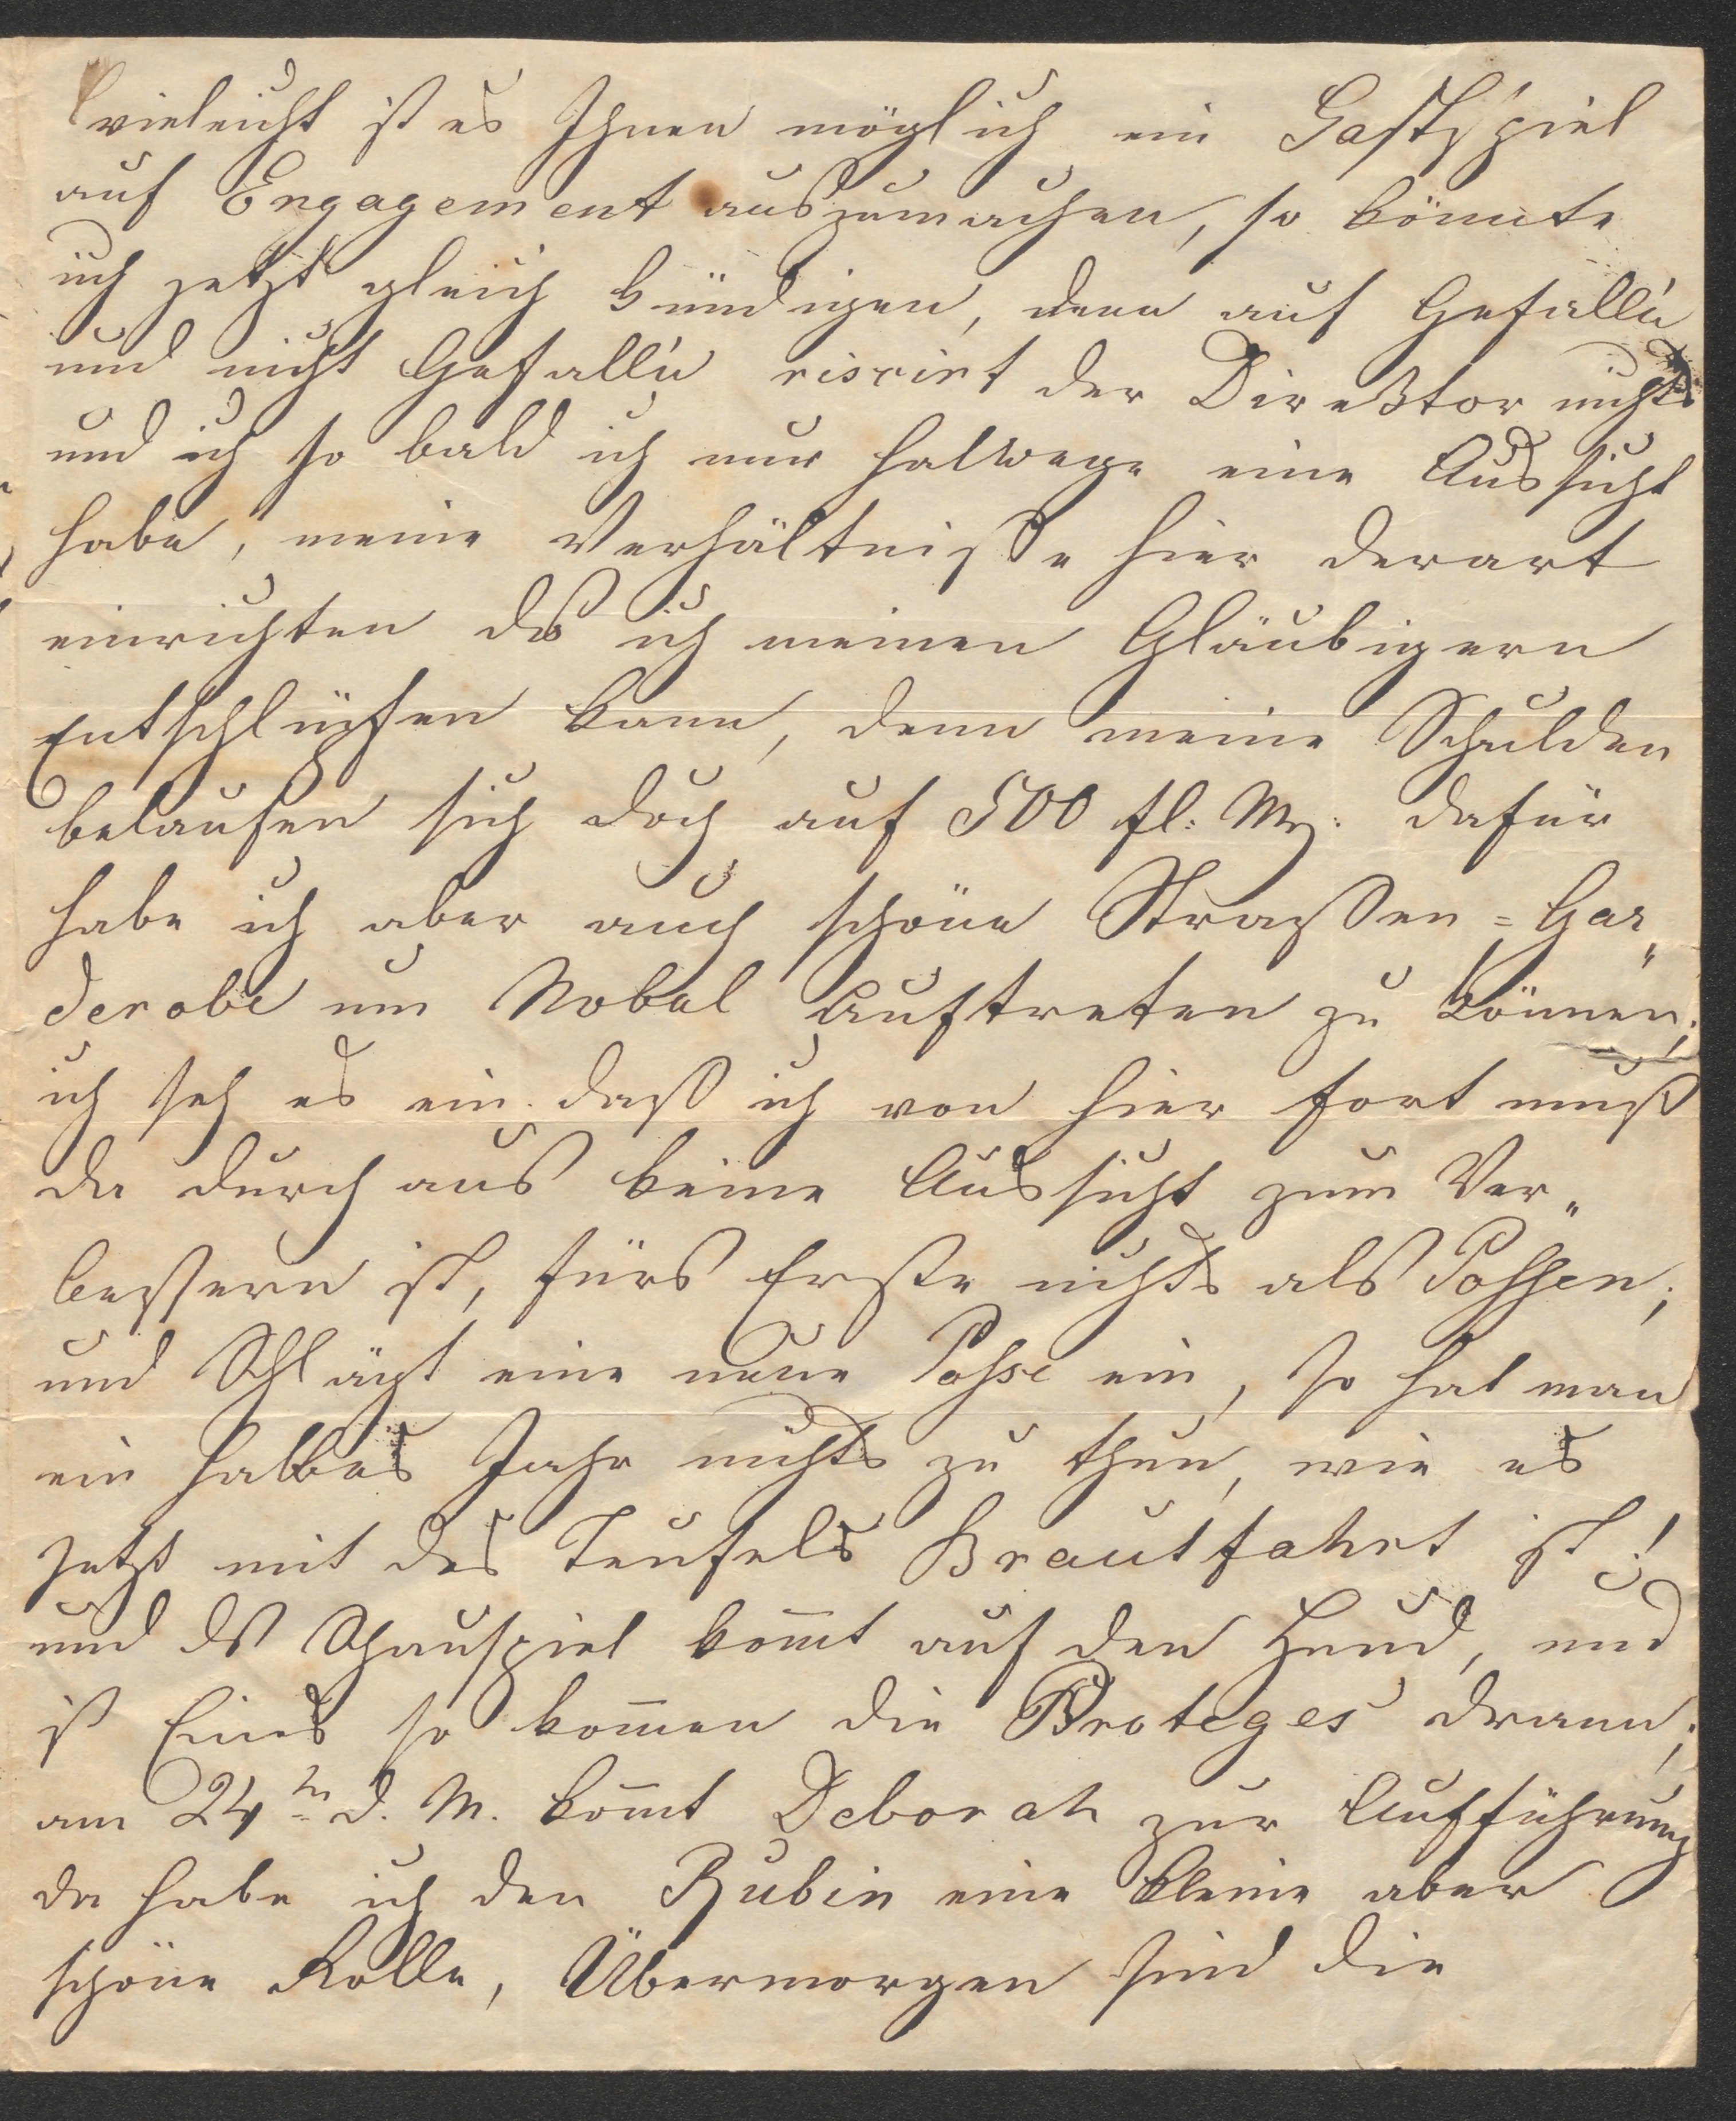 vieleicht ist es Ihnen möglich ein Gastspiel
auf Engagement auszumachen, so könnte
ich jetzt gleich kündigen, denn auf Gefall'n
und nicht Gefall'n riscirt der Direktor nichts
und ich so bald ich nur halwege eine Aussicht
habe, meine Verhältniße hier derart
einrichten ds ich meinen Gläubigern
Entschlüpfen kann, denn meine Schulden
belaufen sich doch auf 500 fl: Mz. dafür
habe ich aber auch schöne Straßen=Gar„
derobe um Nobel Auftreten zu können;
ich seh es ein daß ich von hier fort muß
da durchaus keine Aussicht zum Ver„
beßern ist, fürs Erste nichts als Possen;
und Schlägt eine neue Posse ein, so hat man
ein halbes Jahr nichts zu thun, wie es
jetzt mit des Teufels Brautfahrt ist!
und ds Schauspiel kom̄t auf den Hund, und
ist Eines so kom̄en die Proteges drann;
am 24tn d. M. kom̄t Deborah zur Aufführung
da habe ich den Rubin eine kleine aber
schöne Rolle, Übermorgen sind die